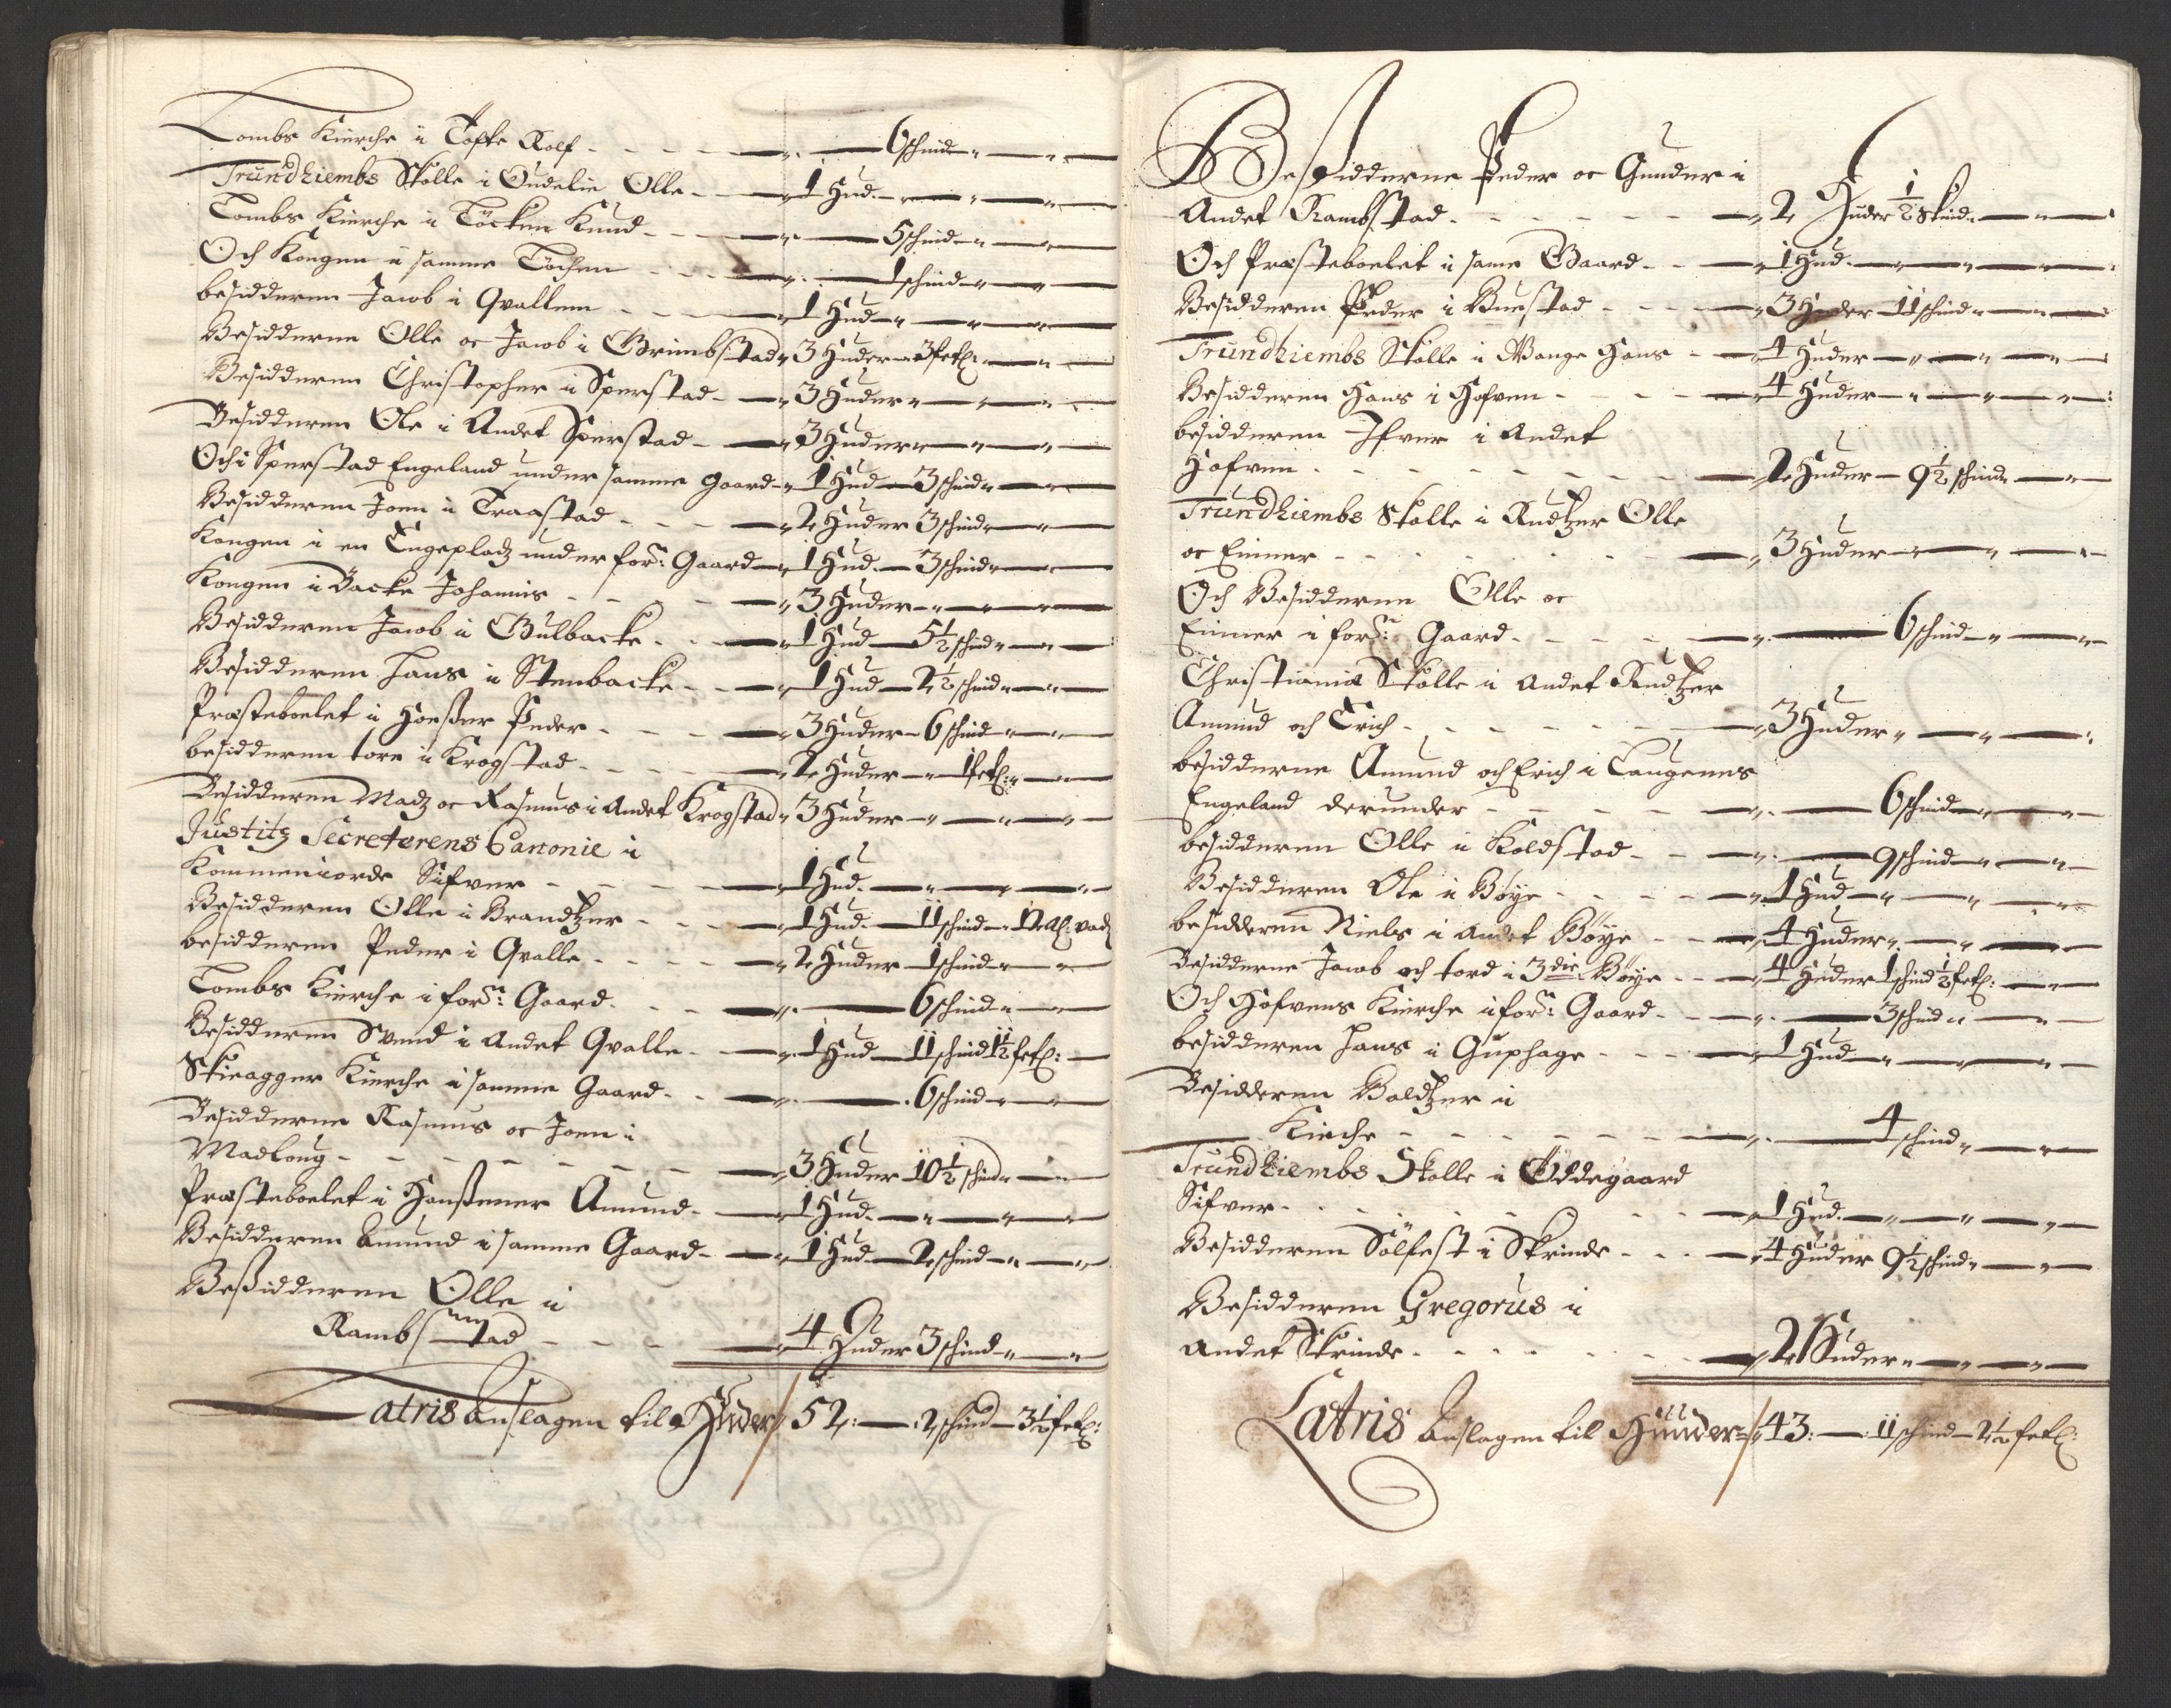 Tombs Kierche ü Tofte Rolf - - - - „ — 6 schind — „ —
Trundhiembs Skolle i Oudelie Olle - - - 1 Hud. — „ —
Tombs Kierche i Töcken Knud - - - „ — 5 schind — „ —
Och Kongen ü samme Töchen - - - „ — 1 schind — „ —
besidderen Jacob i Qvallem - - - 1 Hud — „ —
Besidderne Olle oc Jacob i Grimbstad „ 3 Huder — „ 3 fetl: — „ —
Besidderen Christopher ü Sperstad - — „ 3 Huder „ — „ —
Besidderen Ole i Andet Sperstad - — „ 3 Huder „ — „ —
Och i Sperstad Engeland under samme Gaard - „ 1 Hud — 3 schind „ —
Besidderen Joen ü Traastad - - - — „ 2 Huder 3 schind „ —
Kongen i en Engepladz under forn: Gaard — „ 1 Hud. — 3 schind „ —
Kongen i Backe Johannis - - - — „ 3 Huder — „ —
Besidderen Jacob ü Gulbacke - - - — „ 1 Hud — 5½ schind „ —
Besidderen Hans ü Stenbacke - - — „ 1 Hud — 2½ schind „ —
Præsteboelet ü Peder - - - — „ 3 Huder — 6 schind „ —
besidderen tore ü Krogstad - - - — „ 2 Huder — „ 1 fetl: „ —
Besidderen Madz oc Rasmus i Andet Krogstad „ 3 Huder — „ —
Justitz Secreterens Canonie ü
Sifver - - - - — „ 1 Hud. — „ —
Besidderen Olle ü Brandtzer - - - — „ 1 Hud. — 11 schind —
besidderen Peder i Qvalle - - - - — „ 2 Huder 1 schind — „ —
Tombs Kierche i forn: Gaard - - - — „ — 6 schind „ —
Besidderen Svend i Andet Qvalle - — „ 1 Hud — 11 schind 1½ fetl: —
Skieagger Kierche i samme Gaard - - — „ — 6 schind — „ —
Besidderne Rasmus oc Joen i
Madloug - - - - - - - — „ 3 Huder 10½ schind „ —
Præsteboelet i Amund - — „ 1 Hud. — „ —
Besidderen Amund i samme Gaard - — „ 1 Hud — 2 schind — „ —
Beßidderen Olle ü
Rambstad - - - — „ 4 Huder 3 schind „ — „
Latris Anslagen til Hüder „ 52: — : 2 schind — 3½ fetl:

Besidderne Peder oc Gunder ü
Andet Rambstad - - - - - — „ 2 Huder ½ skind. — „ —
Och Præsteboelet ü same Gaard - - — „ 1 Hud. — „ —
Besidderen Peder i Buestad - - - — „ 3 Huder 11 schind „ —
Trundhiembs Skolle i Wange Hans - — „ 4 Huder — „ —
Besidderen Hans i Hafven - - - — „ 4 Huder — „ —
besidderen Ifver i Andet
Hafven - - - - - - — „ 2 Huder — 9½ schind — „ —
Trundhiembs Skolle ü Rudtzer Olle
oc Einner - - - - - - — „ 3 Huder — „ —
Och Besidderne Olle oc
Einner i forn: Gaard - - - - — „ — 6 schind — „ —
Christiania Skolle ü Andet Rudtzer
Amund och Erich - - - - - — „ 3 Huder „ — „ —
besidderne Amund och Erich i Taugenns
Engeland derunder - - - - — „ — 6 schind „ —
besidderen Olle ü Koldstad - - — „ — 9 schind — „ —
Besidderen Ole ü Böye - - - - — „ 1 Hud — „ —
besidderen Niels i Andet Böye - - — „ 4 Huder „ — „ —
Besidderne Jacob och tord i 3die Böye - - — „ 4 Huder 1 schind ½ fetl: — „ —
Och Hafvens Kierche ü forn: Gaard - - — „ — 3 schind „ —
besidderen Hans ü Guphage - - - — „ 1 Hud — „ —
Besidderen Baldtzer ü
Kirche - - - - - - — „ — 4 schind „ —
Trundhiembs Skolle ü Øddegaard
Sifver - - - - - - — „ 1 Hud. — „ —
Besidderen Sölfest i Skrinde - - - — „ 4 Huder 9½ schind „ —
Besidderen Gregorus ü
Andet Skrinde - - - - - — „ 2 Huder „ — „ —
Latris Anslagen til Hüüder „ 43: — : 11 schind — 2½ fetl: